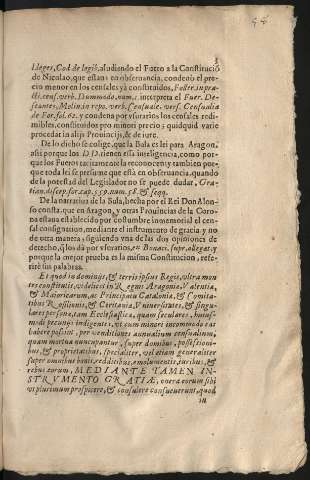 3
lleges, Cod. de legib. aludiendo el Fuero a la Constitució
de Nicolao, que estan en observancia, condenò el pre-
cio menor en los censales yà constituidos, Fuster. in pra-
cti. cens. verb. Dummodo, num. interpreta el Fuer. De-
seantes, Molin. in repo. verb. Censuale. vers. Censualia
de For. fol. 62. y condena por vsurarios los censales redi-
mibles, constituidos pro minori precio; quidquid varie
procedat in alijs Provincijs, & de iure.
De lo dicho se colige, que la Bula es lei para Aragon,
asi porque los DD. tienen esta inteligencia, como por-
que los Fueros tacitamente la reconocen; y tambien por-
que toda lei se presume que està en observancia, quando
de la potestad del Legislador no se puede dudar, Gra-
tian. discep. for. cap. 559. num. 58. & seqq.
De la narrativa de la Bula, hecha por el Rei Don Alon-
so consta, que en Aragon, y otras Provincias de la Coro-
na estava establecido por costumbre inmemorial el cen-
sal consignativo, mediante el instrumento de gracia, y no
de otra manera, siguiendo vna de las dos opiniones de
derecho, q̃ los dà por vsurarios, ex Bonaci. supr. alegat. y
porque la mejor prueba es la misma Constitucion, refe-
rirè sus palabras.
Et quod in dominijs, & terris ipsius Regis, vltra mon-
tes constitutis, videlicet in Regnis Aragoniæ, Valentiæ,
& Maioricarum, ac Principatu Catalonia, & Comita-
tibus Rossilionis, & Ceritania, Vniversitates, & singu-
lares persona, tam Ecclesiastica, quam seculares, huius-
modi pecunijs indigentes, vt cum minori incommodo eas
habere possint, per venditiones annualium censualium,
quam mortua nuncupantur, super domibus, possessioni-
bus, & proprietatibus, specialiter, vel etiam generaliter
super omnibus bonis, redditibus, emolumentis, iuribus, &
rebus eorum, MEDIANTE TAMEN IN-
STRVMENTO GRATIÆ, onera eorum sibi
vt plurimum prospicere, & consulere consueverunt, quod
in